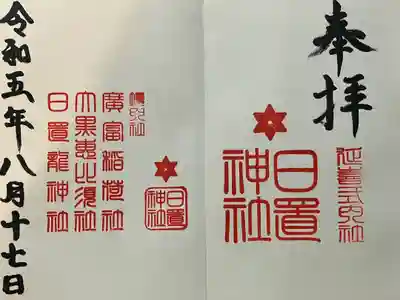 奉拝
延喜式内社
日置
神社
境内社
廣富稲荷社
大黒恵比須社
日置龍神社
日置
神社
令和五年八月十七日